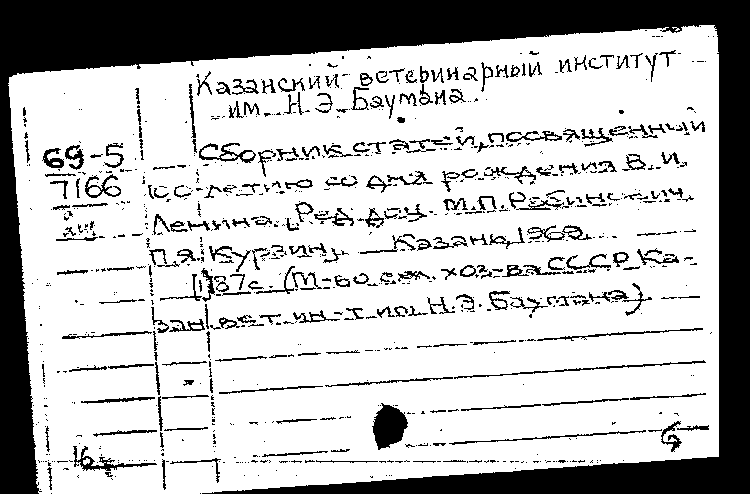 Казанский ветеринарный институт
им. Н.Э. Баумана.
69-5
7166
Сборник статей, посвященный
100-летию со дня рождения В.И.
Ленина. [Ред. доц. М.П. Рабинович,
П.Я. Курзин]. Казань, 1969.
[1] 87с. (М-во сел. хоз-ва СССР. Ка-
зан. вет. ин-т им. Н.Э. Баумана)
16